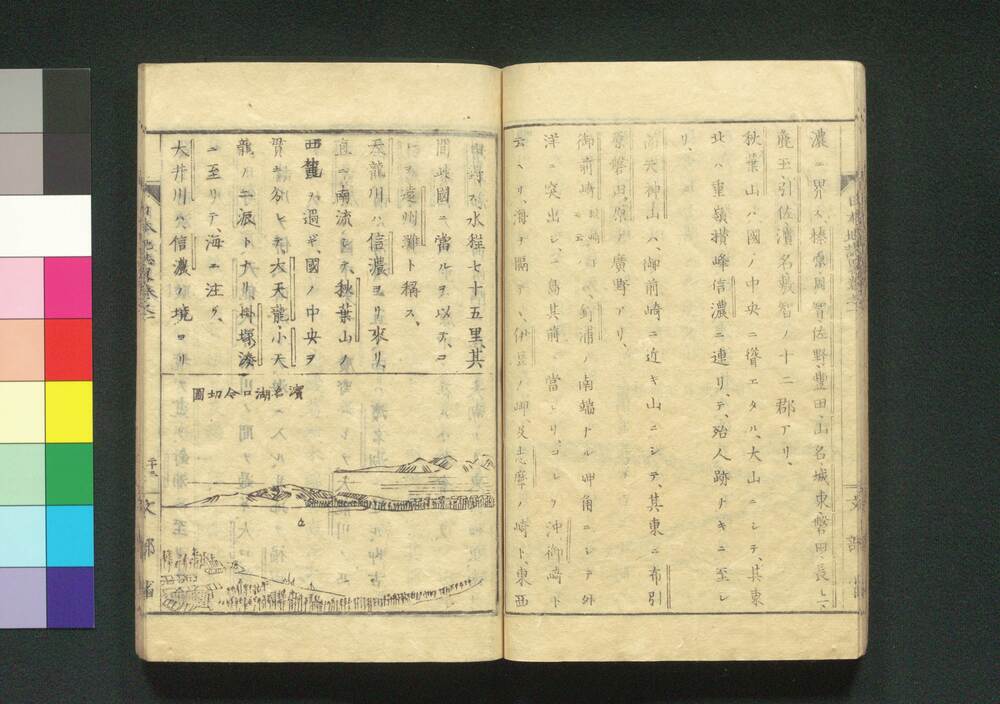 濃ニ界ス、榛原周智佐野、豐田、山名城東磐田、長上、
麁玉、引佐濱名敷智ノ十二郡アリ、
秋葉山ハ國ノ中央ニ聳エタル、大山ニシテ、其東
北ハ重嶺攅峰信濃ニ連リ、テ、殆人跡ナキニ至レ
リ、
天神山ハ、御前崎ニ近キ山ニシテ、其東ニ布引
原磐田原ノ廣野アリ、
御前崎
浦ノ南端ナル岬角ニシテ外
洋ニ突出シ、島其前ニ當レリ、コレヲ沖御崎ト
云ヘリ、海ヲ隔テヽ、伊豆ノ岬、及志摩ノ崎ト、東西
水程七十五里、其
間此國ニ當ルヲ以テ、コ
レヲ遠州灘ト稱ス、
天龍川ハ、信濃ヨリ來リ、
直ニ南流シテ、秋葉山ノ
西麓ヲ過ギ、國ノ中央ヲ
貫キ、分レテ、大天龍、小天
龍ノ二派トナリ、掛塚湊
ニ至リテ、海ニ注グ、
大井川ハ、信濃ノ境ヨリ
濱名湖口今切圖
文部省